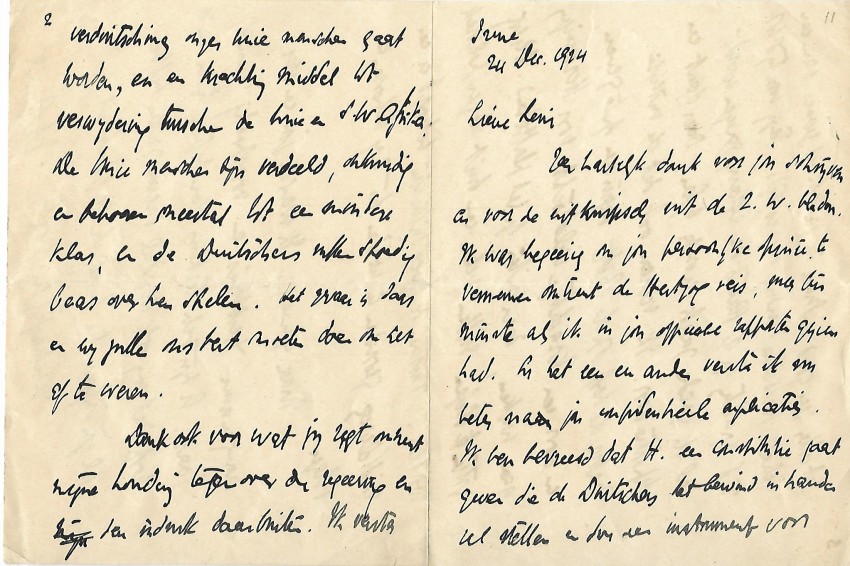 11
Irene
24 Dec. 1924
Lieve Reni
Zeer hartelijk dank voor jou schrijven
en voor de uitknipsels uit de Z. W. bladen.
Ik was begeerig om jou persoonlijke opinie te
vernemen omtrent de Hertzog reis, meer ten
minste als ik in jou officieele rapporten gezien
had. En het een en ander versta ik nu
beter naar jou confidentieele explicaties.
Ik ben bevreesd dat H. een constitutie gaat
geven die de Duitschers het bewind in handen
zal stellen en dus een instrument voor
2
verduitsching onzer Unie menschen gaat
worden, en een krachtig middel tot
verwydering tusschen de Unie en S W Afrika.
De Unie menschen zijn verdeeld, onkundig
en behooren meestal tot een mindere
klas, en de Duitschers zullen spoedig
baas over hen spelen. Het gevaar is daar
en wy zullen ons best moeten doen om het
af te weren.
Dank ook voor wat jy zegt omtrent
mijne houding tegenover de regeering en
den indruk daarbuiten. Ik versta